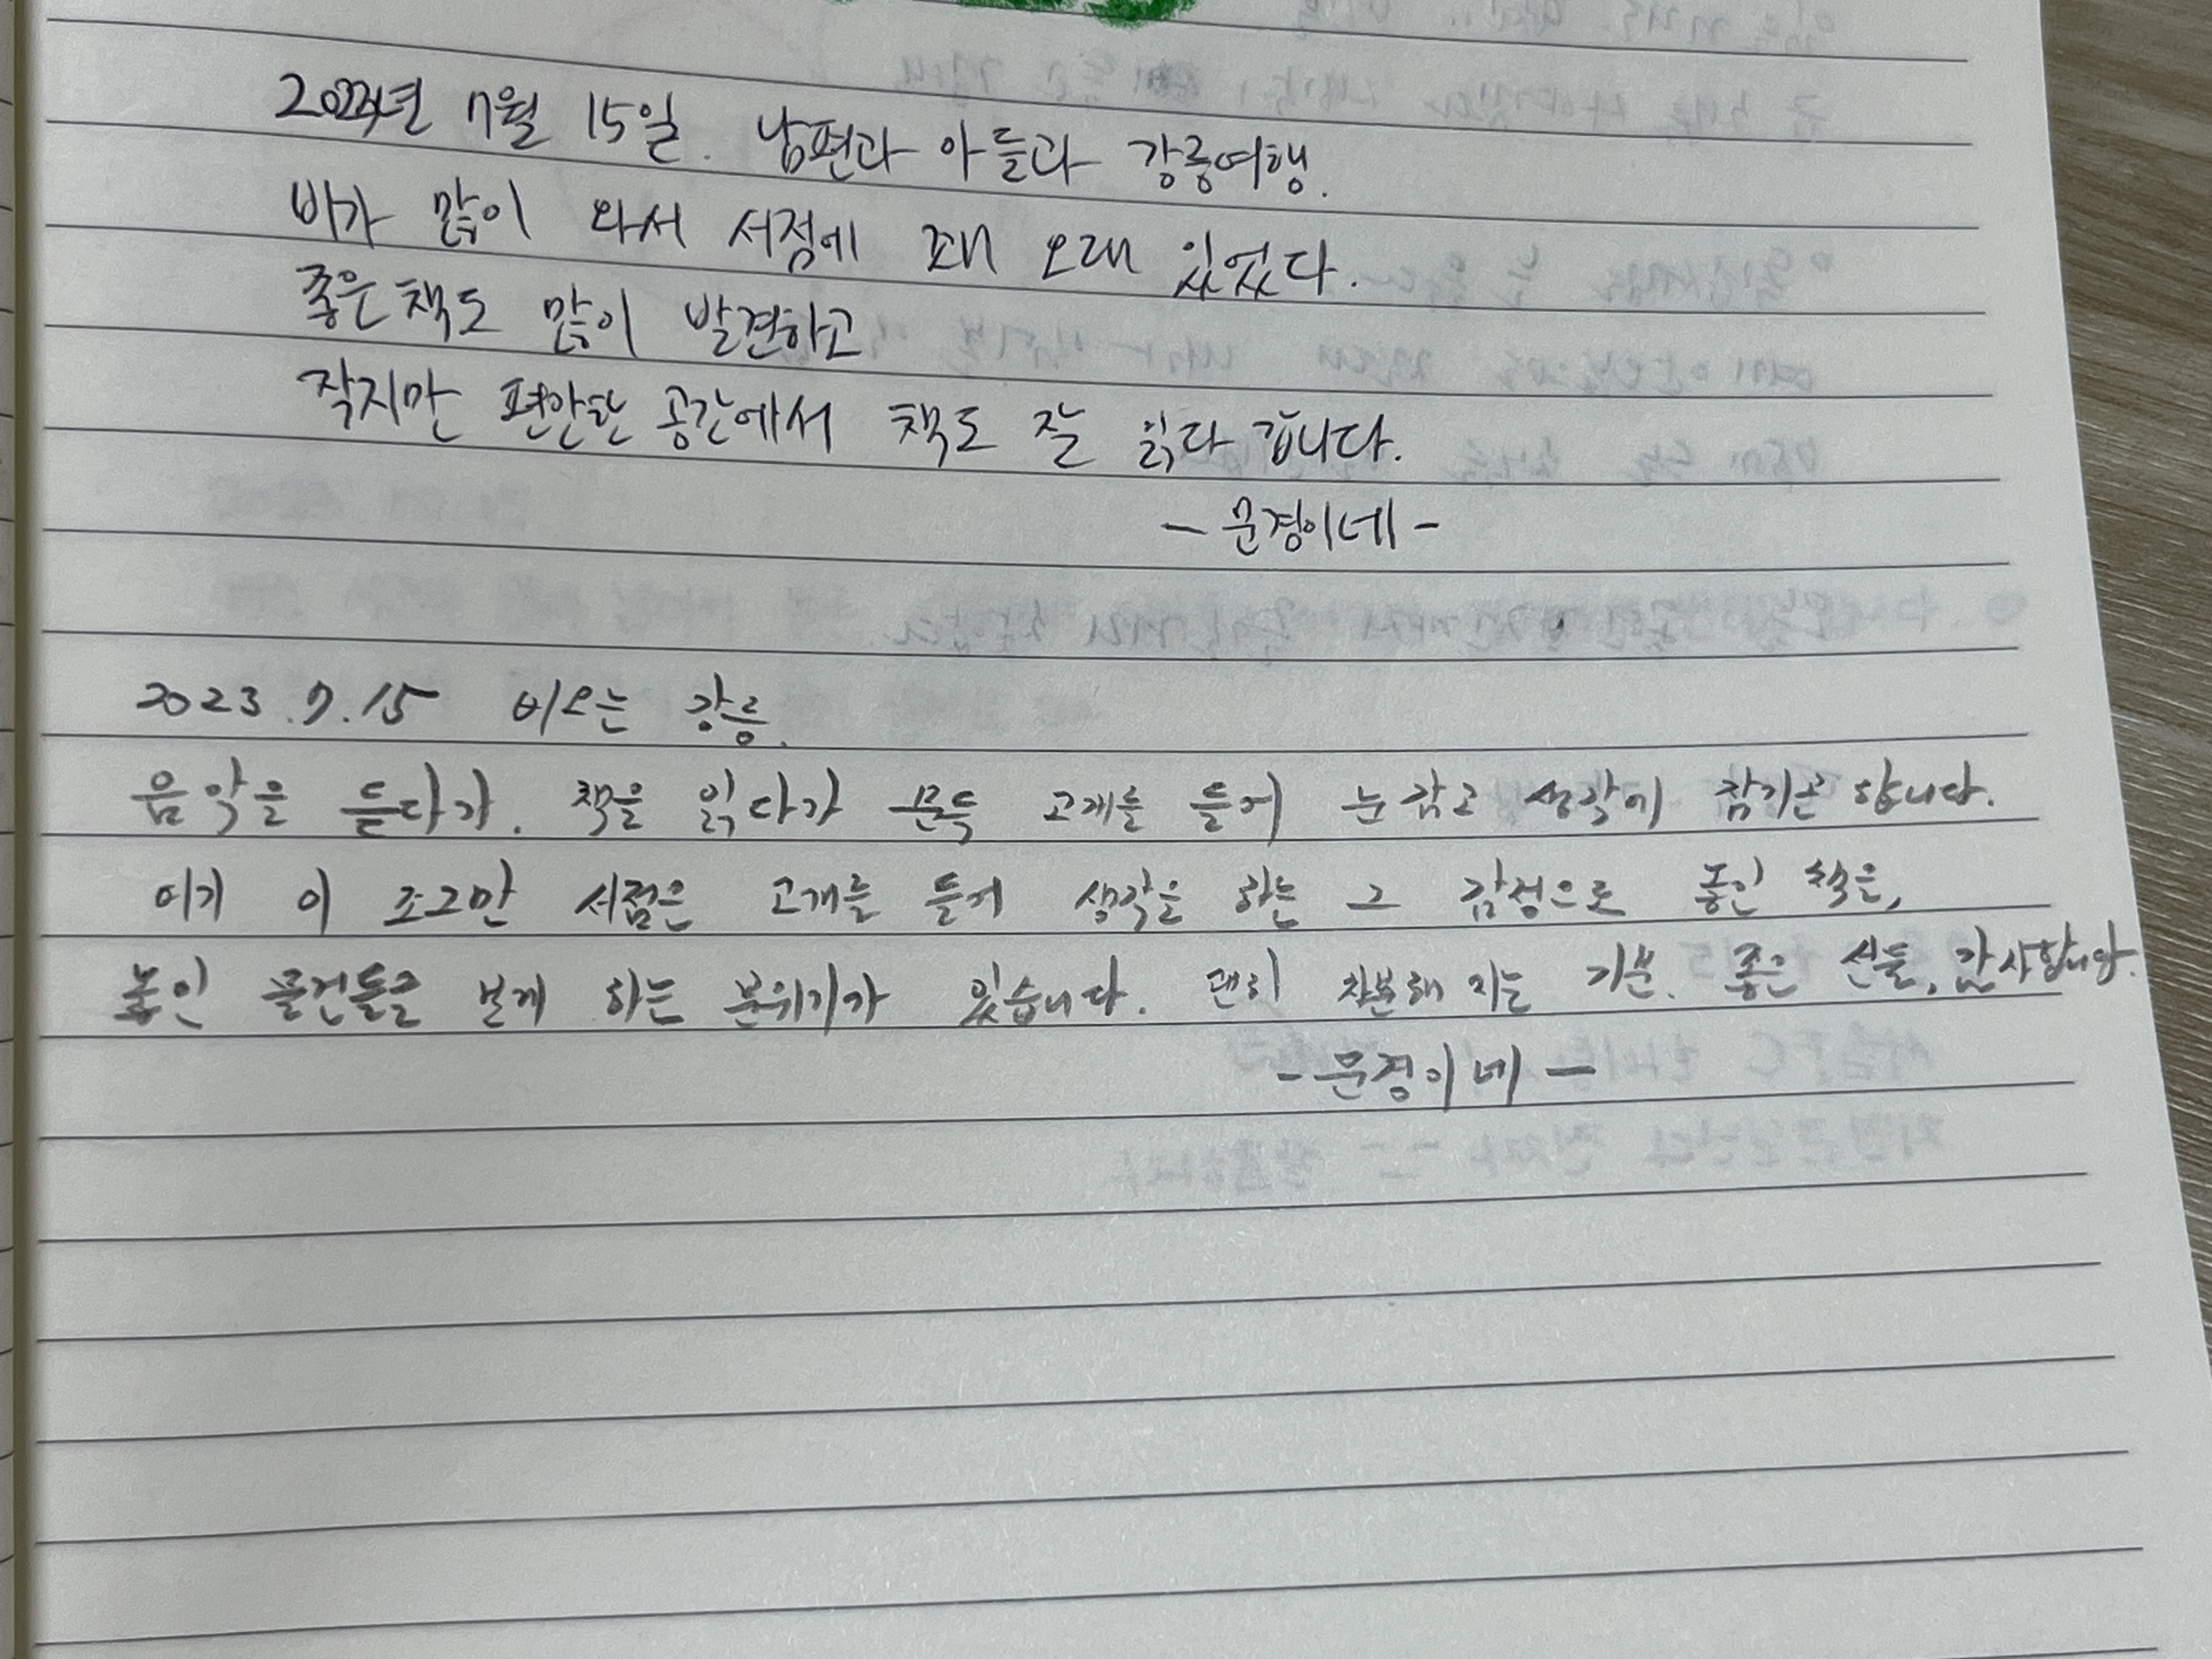 2023년 7월 15일. 남편과 아들과 강릉여행.
비가 많이 와서 서점에 꽤 오래 있었다.
좋은 책도 많이 발견하고
작지만 편안한 공간에서 책도 잘 읽다 갑니다.
- 문경이네 -
2023.7.15 비오는 강릉.
음악을 듣다가. 책을 읽다가 문득 고개를 들어 눈 감고 생각에 잠기곤 합니다.
여기 이 조그만 서점은 고개를 들어 생각을 하는 그 감정으로 놓인 책은,
놓인 물건들을 보게 하는 분위기가 있습니다. 괜히 차분해 지는 기분. 좋은 선물, 감사합니다.
- 문경이네 -